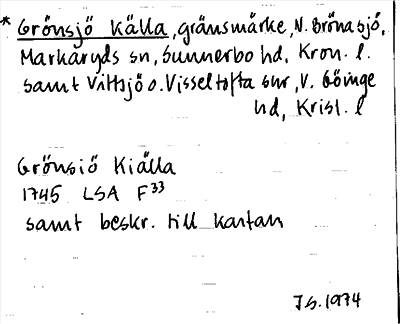 * Grönsjö Källa, gränsmärke, N. Brönasjö,
Markaryds sn, Sunnerbo hd, Kron. l.
samt Vittsjö o. Visseltofta snr, V. Göinge
hd, Krist. l
Grönsiö Kiälla
1745 LSA F33
samt beskr. till kartan
J.S. 1974